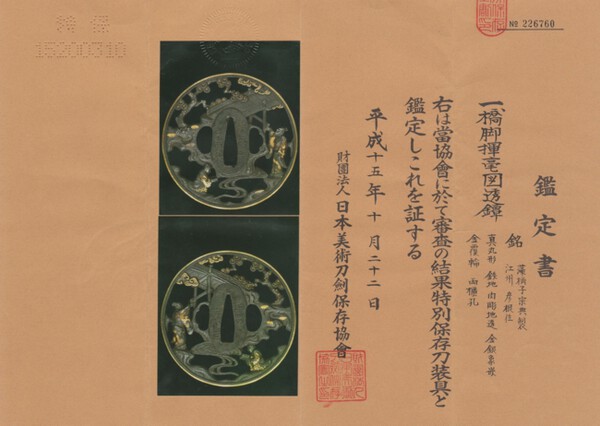 № 226760
鑑定書
一、橋脚揮毫図透鐔
銘 藻柄子宗典製
江州彦根住
真丸形 鉄地 肉彫地透 金銀象嵌
金覆輪 両櫃孔
右は當協會に於て審査の結果特別保存刀装具と
鑑定しこれを証する
平成十五年十月二十二日
財團法人日本美術刀劍保存協會
保
15200310